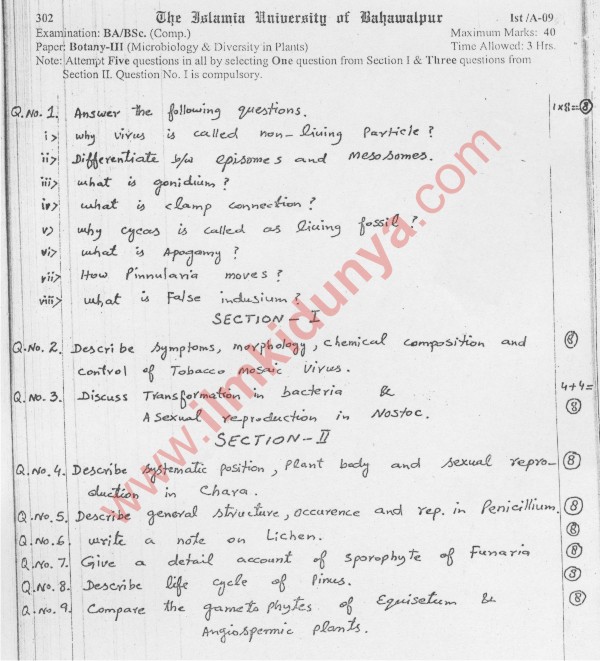 302 The Islamia University of Bahawalpur 1st /A-09
Examination: BA/BSc. (Comp.) Maximum Marks: 40
Paper: Botany-III (Microbiology & Diversity in Plants) Time Allowed: 3 Hrs.
Note: Attempt Five questions in all by selecting One question from Section I & Three questions from
Section II. Question No. I is compulsory.
Q.No. 1. Answer the following questions. 1x8=8
i> why virus is called non-living Particle?
ii> Differentiate b/w episomes and mesosomes.
iii> what is gonidium?
iv> what is clamp connection?
v> why cycas is called as living fossil?
vi> what is Apogamy?
vii> How Pinnularia moves?
viii> what is False indusium?
SECTION - I
Q.No. 2. Describe symptoms, morphology, chemical composition and 8
control of Tobacco mosaic virus.
Q.No. 3. Discuss Transformation in bacteria & 4+4=
Asexual reproduction in Nostoc. 8
SECTION - II
Q.No. 4. Describe systematic position, Plant body and sexual repro- 8
duction in Chara.
Q.No. 5. Describe general structure, occurence and rep. in Penicillium. 8
Q.No. 6. write a note on Lichen. 8
Q.No. 7. Give a detail account of sporophyte of Funaria 8
Q.No. 8. Describe life cycle of Pinus. 8
Q.No. 9. Compare the gametophytes of Equisetum & 8
Angiospermic plants.
www.ilmkidunya.com